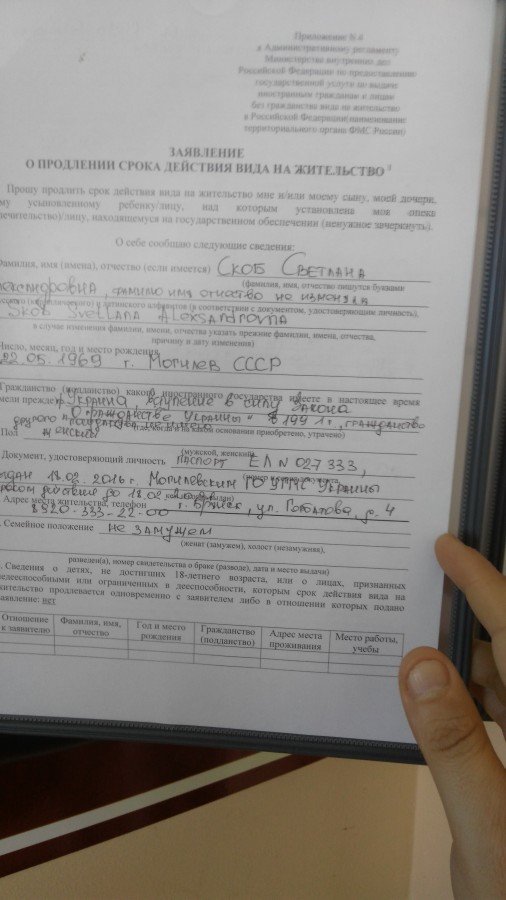 Приложение N 4
к Административному регламенту
Министерства внутренних дел
Российской Федерации по предоставлению
государственной услуги по выдаче
иностранным гражданам и лицам
без гражданства вида на жительство
в Российской Федерации(наименование
территориального органа ФМС России)
ЗАЯВЛЕНИЕ
О ПРОДЛЕНИИ СРОКА ДЕЙСТВИЯ ВИДА НА ЖИТЕЛЬСТВО 1
Прошу продлить срок действия вида на жительство мне и/или моему сыну, моей дочери,
му усыновленному ребенку/лицу, над которым установлена моя опека
печительство)/лицу, находящемуся на государственном обеспечении (ненужное зачеркнуть).
О себе сообщаю следующие сведения:
Фамилия, имя (имена), отчество (если имеется) Скоб Светлана
(фамилия, имя, отчество пишутся буквами
лександровна, фамилию имя отчество не изменяла
усского (кириллического) и латинского алфавитов (в соответствии с документом, удостоверяющим личность),
Skob Svetlana Aleksandrovna
в случае изменения фамилии, имени, отчества указать прежние фамилии, имена, отчества,
причину и дату изменения)
Число, месяц, год и место рождения
22.05.1969 г. Могилев СССР
Гражданство (подданство) какого иностранного государства имеете в настоящее время
мели прежде) Украина, вступление в силу Закона
"О гражданстве Украины" в 1991 г., гражданство
другого государства не имела
(где, когда и на каком основании приобретено, утрачено)
Пол женский
(мужской, женский)
Документ, удостоверяющий личность паспорт ЕЛ N 027333,
выдан 18.02.2016 г. Могилевским ГО УМС Украины
сроком действия до 18.02
Адрес места жительства, телефон г. Брянск, ул. Горбатова, д. 4
8920-333-22-00
Семейное положение не замужем
(женат (замужем), холост (незамужняя),
разведен(а), номер свидетельства о браке (разводе), дата и место выдачи)
Сведения о детях, не достигших 18-летнего возраста, или о лицах, признанных
недееспособными или ограниченных в дееспособности, которым срок действия вида на
жительство продлевается одновременно с заявителем либо в отношении которых подано
заявление: нет
Отношение к заявителю
Фамилия, имя, отчество
Год и место рождения
Гражданство (подданство)
Адрес места проживания
Место работы, учебы